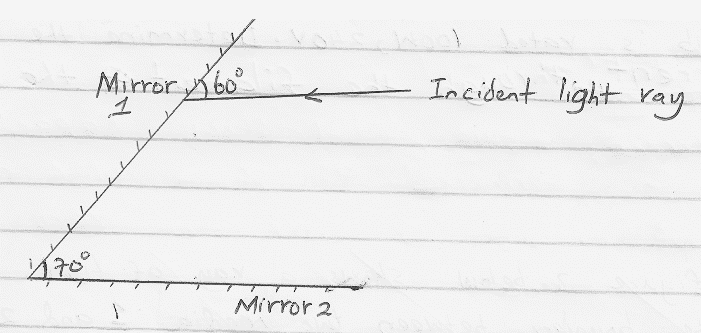 Mirror 60° Incident light ray
1
70°
Mirror 2